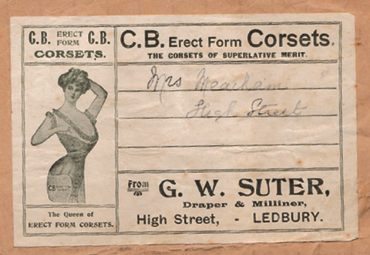 C.B. ERECT FORM C.B.
CORSETS.
The Queen of
ERECT FORM CORSETS.
C.B. Erect Form Corsets.
THE CORSETS OF SUPERLATIVE MERIT.
Mrs
High Street
From G. W. SUTER,
Draper & Milliner,
High Street, - LEDBURY.